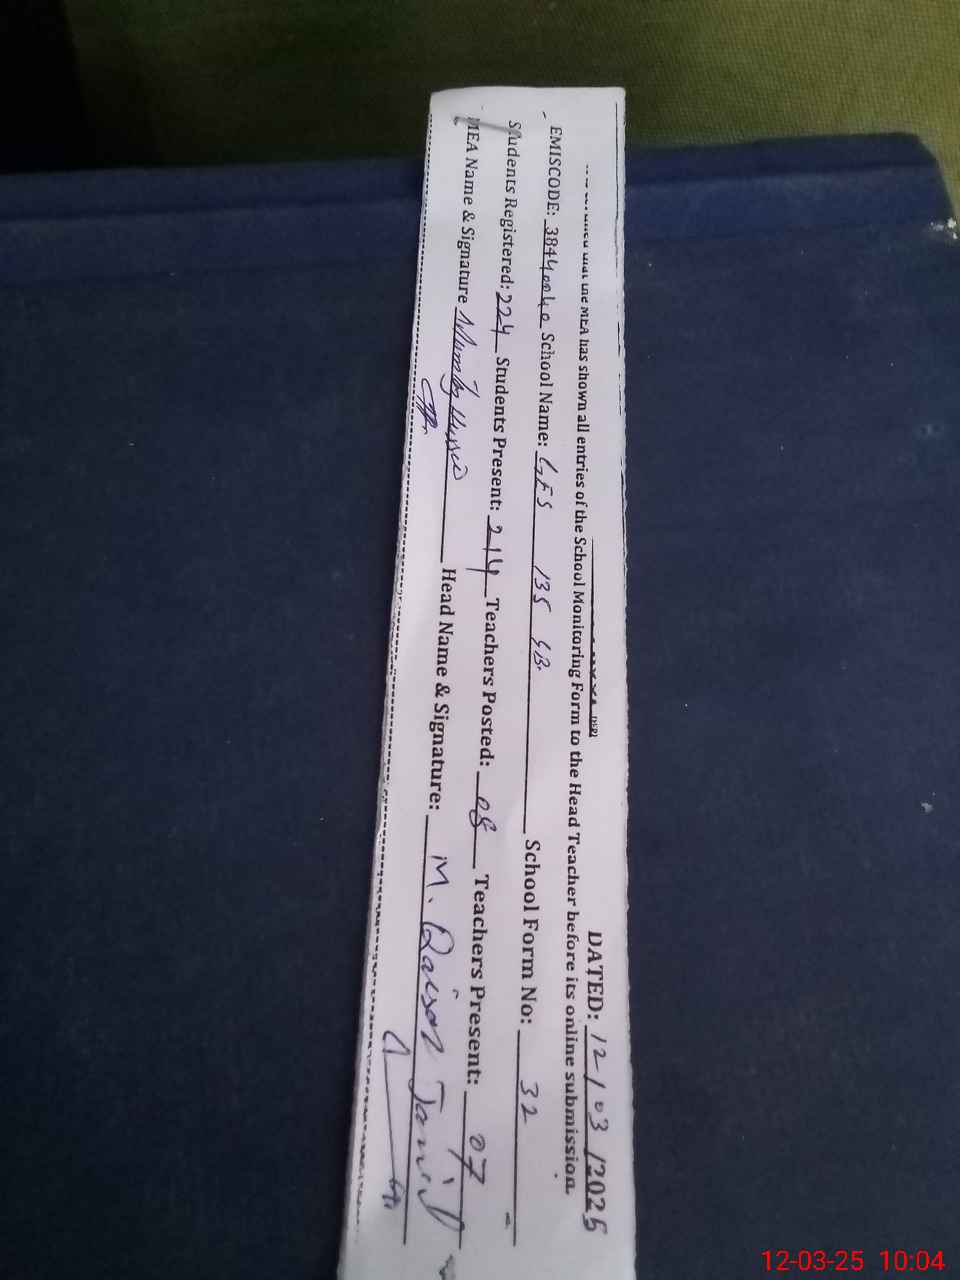 DATED: 12/03/2025
that the MEA has shown all entries of the School Monitoring Form to the Head Teacher before its online submission.
EMISCODE: 38440040 School Name: GES 135 SB. School Form No: 32
Students Registered: 224 Students Present: 214 Teachers Posted: 08 Teachers Present: 07
MEA Name & Signature Head Name & Signature: M. Qaisar
12-03-25 10:04